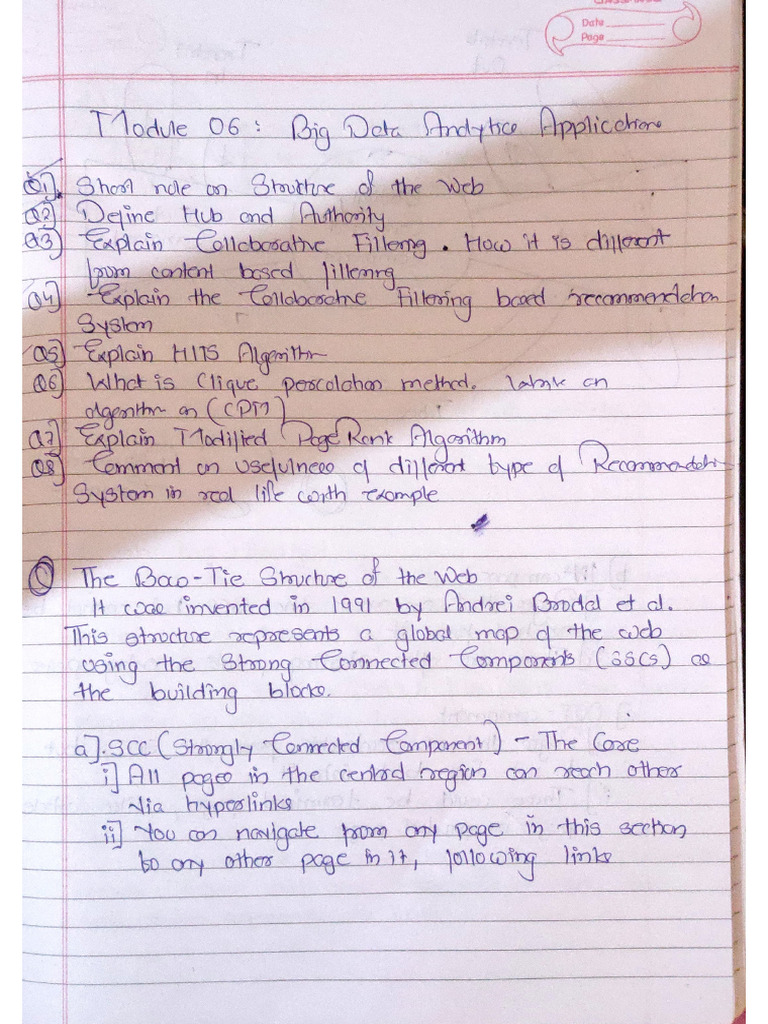 Date
Page
Module 06 : Big Data Analytics Applications
Q1] Short note on Structure of the Web
Q2] Define Hub and Authority
Q3] Explain Collaborative Filtering. How it is different
from content based filtering
Q4] Explain the Collaborative Filtering based recommendation
System
Q5] Explain HITS Algorithm
Q6] What is Clique percolation method. an
algorithm on (CPM)
Q7] Explain Modified PageRank Algorithm
Q8] Comment on usefulness of different type of Recommendati
System in real life with example
The Bow-Tie Structure of the Web
It was invented in 1991 by Andrei Brodal et al.
This structure represents a global map of the web
using the Strong Connected Components (SSCs) as
the building blocks.
a]. SCC (Strongly Connected Component) - The Core
i] All pages in the central region can reach other
via hyperlinks
ii] You can navigate from any page in this section
to any other page in it, following links